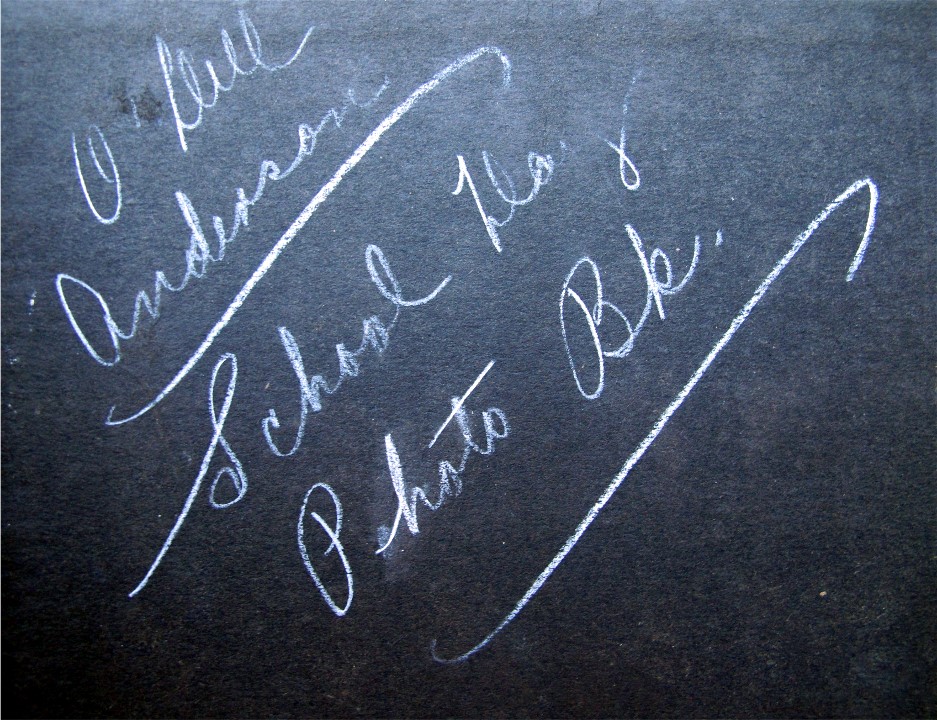 O'Dell
Anderson
School Day
Photo Bk.